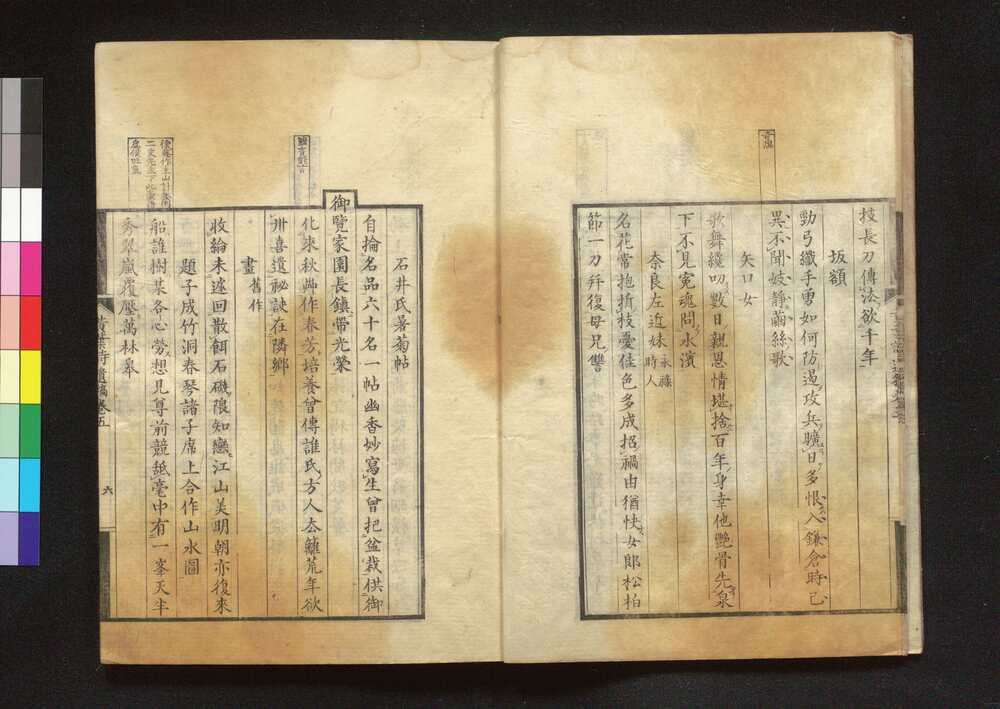 技長刀傳法欲千年
坂額
勁弓纖手更如何防遏攻兵朦日多恨入鎌倉時已
異不聞妓靜繭絲歌
矢口女
歌舞纔叨數日親恩情堪捨百年身幸他艷骨先泉
下不見冤魂問水濱
奈良左近妹永祿時人
名花常抱折枝憂佳色多成招禍由猶快女郎松柏
節一刀幷復母兄讐
石井氏暑菊帖
自掄名品六十名一帖幽香妙寫生曾把盆栽供御
御覽家園長鎮帶光榮
化來秋典作春芳培養曾傳誰氏方人去籬荒年欲
卅喜遺祕訣在隣鄉
畫舊作
收綸未遽回散餌石磯隈知戀江山美明朝亦復來
題子成竹洞春琴諸子席上合作山水圖
船誰樹某各心勞想見尊前競舐毫中有一峯天半
秀翠嵐覆壓萬林皋
黃葉夕陽遺稿卷五
六